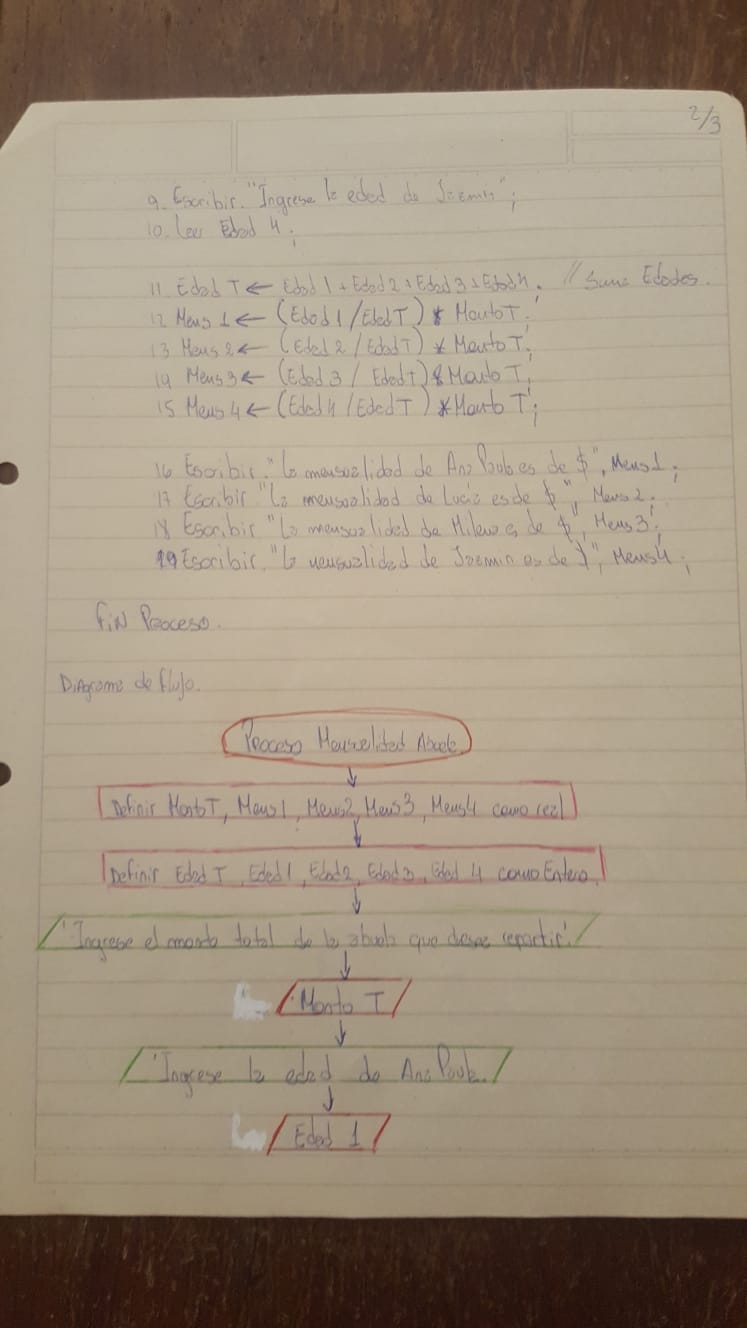 2/3
9. Escribir. "Ingrese la edad de Jazmin";
10. Leer Edad 4;
11 Edad T ← Edad 1 + Edad 2 + Edad 3 + Edad 4. // Suma Edades.
12 Mens 1 ← (Edad 1 / Edad T) * Monto T;
13 Mens 2 ← (Edad 2 / Edad T) * Monto T;
14 Mens 3 ← (Edad 3 / Edad T) * Monto T;
15 Mens 4 ← (Edad 4 / Edad T) * Monto T;
16 Escribir. "La mensualidad de Ana Paula es de $", Mens 1;
17 Escribir "La mensualidad de Lucia es de $", Mens 2.
18 Escribir "La mensualidad de Milena es de $", Mens 3;
19 Escribir. "La mensualidad de Jazmin es de $", Mens 4;
Fin Proceso.
Diagrama de flujo.
Proceso Mensualidad Abuela
Definir Monto T, Mens 1, Mens 2, Mens 3, Mens 4 como real
Definir Edad T, Edad 1, Edad 2, Edad 3, Edad 4 como Entero.
'Ingrese el monto total de la abuela que desea repartir'
Monto T
'Ingrese la edad de Ana Paula.
Edad 1